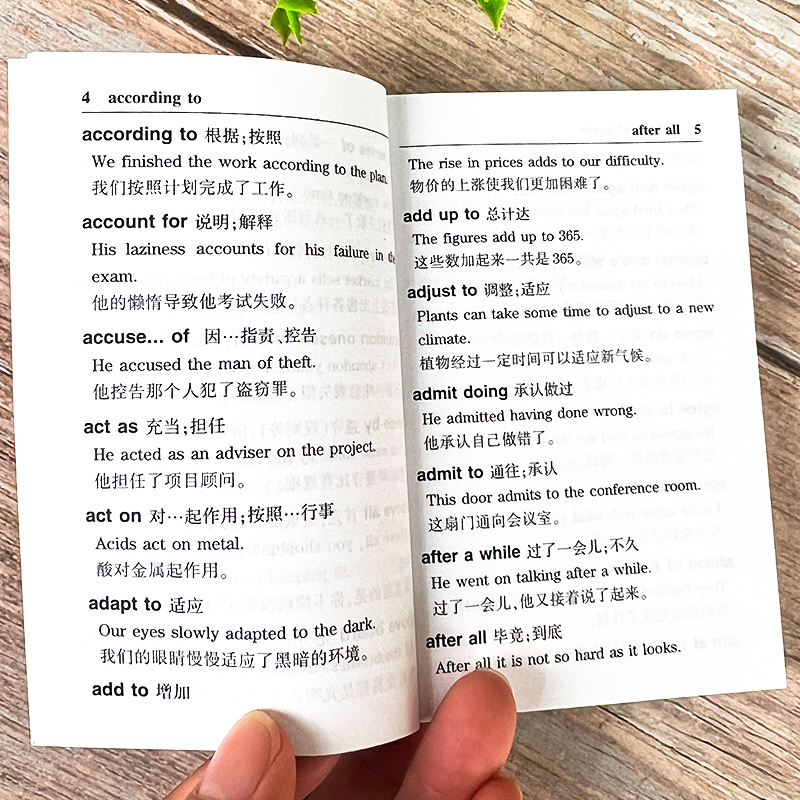 4 according to
according to 根据;按照
We finished the work according to the plan.
我们按照计划完成了工作。
account for 说明;解释
His laziness accounts for his failure in the
exam.
他的懒惰导致他考试失败。
accuse… of 因…指责、控告
He accused the man of theft.
他控告那个人犯了盗窃罪。
act as 充当;担任
He acted as an adviser on the project.
他担任了项目顾问。
act on 对…起作用;按照…行事
Acids act on metal.
酸对金属起作用。
adapt to 适应
Our eyes slowly adapted to the dark.
我们的眼睛慢慢适应了黑暗的环境。
add to 增加
after all 5
The rise in prices adds to our difficulty.
物价的上涨使我们更加困难了。
add up to 总计达
The figures add up to 365.
这些数加起来一共是 365。
adjust to 调整;适应
Plants can take some time to adjust to a new
climate.
植物经过一定时间可以适应新气候。
admit doing 承认做过
He admitted having done wrong.
他承认自己做错了。
admit to 通往;承认
This door admits to the conference room.
这扇门通向会议室。
after a while 过了一会儿;不久
He went on talking after a while.
过了一会儿,他又接着说了起来。
after all 毕竟;到底
After all it is not so hard as it looks.